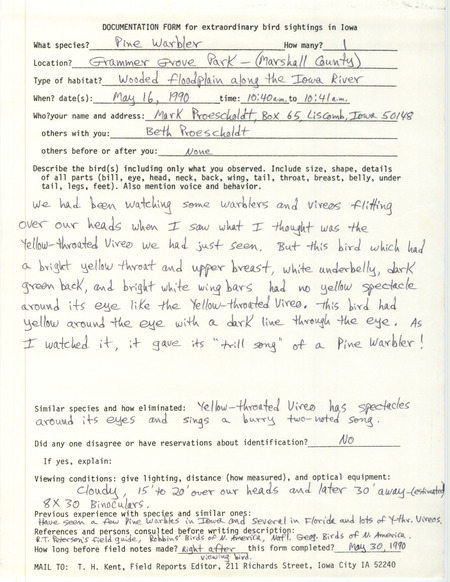 DOCUMENTATION FORM for extraordinary bird sightings in Iowa
What species? Pine Warbler How many? 1
Location? Grammer Grove Park - (Marshall County)
Type of habitat? Wooded floodplain along the Iowa River
When? date(s): May 16, 1990 time: 10:40 a.m. to 10:41 a.m.
Who?your name and address: Mark Proescholdt, Box 65, Liscomb, Iowa 50148
others with you: Beth Proescholdt
others before or after you: None
Describe the bird(s) including only what you observed. Include size, shape, details
of all parts (bill, eye, head, neck, back, wing, tail, throat, breast, belly, under
tail, legs, feet). Also mention voice and behavior.
We had been watching some warblers and vireos flitting
over our heads when I saw what I thought was the
Yellow-throated Vireo we had just seen. But this bird which had
a bright yellow throat and upper breast, white underbelly, dark
green back, and bright white wing bars had no yellow spectacle
around its eye like the Yellow-throated Vireo. This bird had
yellow around the eye with a dark line through the eye. As
I watched it, it gave its "trill song" of a Pine Warbler!
Similar species and how eliminated: Yellow-throated Vireo has spectacles
around its eyes and sings a burry two-noted song.
Did any one disagree or have reservations about identification? No
If yes, explain:
Viewing conditions: give lighting, distance (how measured), and optical equipment:
Cloudy, 15' to 20' over our heads and later 30' away-(estimated)
8X30 Binoculars.
Previous experience with species and similar ones:
Have seen a few Pine Warbles in Iowa and several in Floride and lots of Y-thr. Vireos.
References and persons consulted before writing description:
R.T. Peterson's field guide, Robbins' Birds of N. America, Nat'l. Geog. Birds of N. America.
How long before field notes made? Right after viewing bird. this form completed? May 30, 1990
MAIL TO: T. H. Kent, Field Reports Editor, 211 Richards Street, Iowa City IA 52240